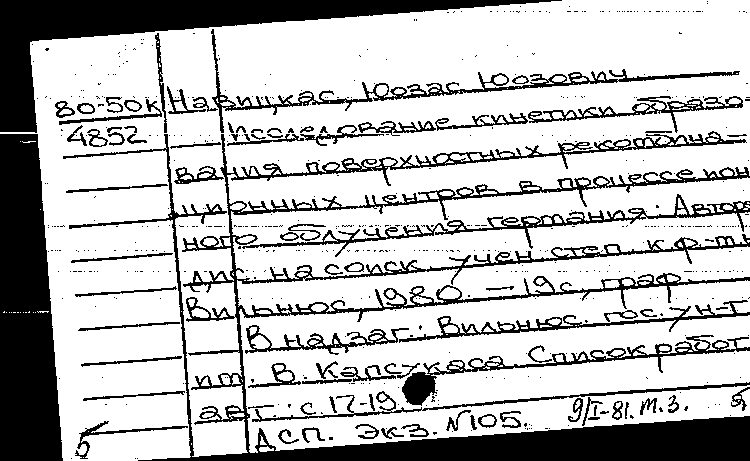 80-50к Навицкас, Юозас Юозович.
4852 Исследование кинетики образо-
вания поверхностных рекомбина-
ционных центров в процессе ион-
ного облучения германия: Автореф.
дис. на соиск. учен. степ. к.ф.-м.н
Вильнюс, 1980. — 19 с., граф.
В надзаг.: Вильнюс. гос. ун-т
им. В. Капсукаса. Список работ
авт.: с. 17-19.
ДСП. Экз. N105. 9/I-81. М.З.